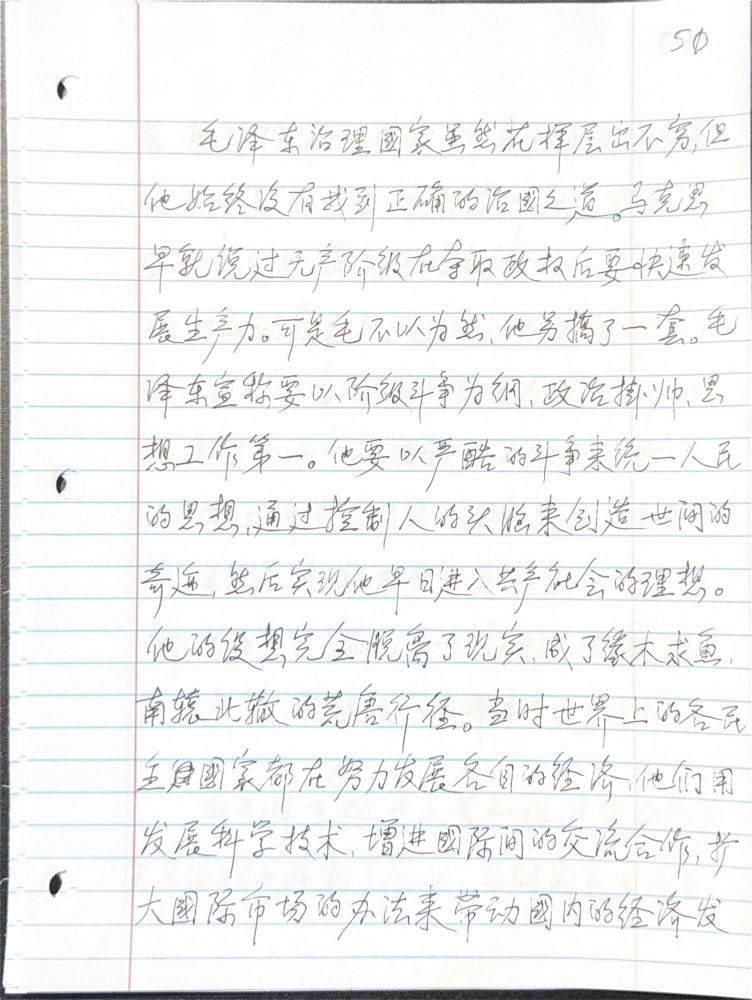 50
毛泽东治理國家虽然花样层出不穷,但
他始终没有找到正确的治國之道。马克思
早就说过无产阶级在夺取政权后要快速发
展生产力。可是毛不以为然,他另搞了一套。毛
泽东宣称要以阶级斗争为纲、政治挂帅、思
想工作第一。他要以严酷的斗争来统一人民
的思想,通过控制人的头脑来创造世间的
奇迹,然后实现他早日进入共产社会的理想。
他的设想完全脱离了现实,成了缘木求鱼,
南辕北辙的荒唐行径。当时世界上的各民
主國家都在努力发展各自的经济,他们用
发展科学技术,增进國际间的交流合作,扩
大國际市场的办法来带动國内的经济发